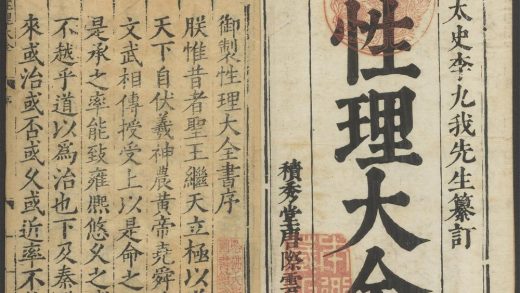 太史李九我先生纂訂
性理大全
積秀堂唐際雲
御製性理大全書序
朕惟昔者聖王繼天立極以
天下自伏羲神農黃帝堯舜
文武相傳授受上以是命之
是承之率能致雍熙悠久之
不越乎道以為治也下及秦
來或治或否或久或近率不